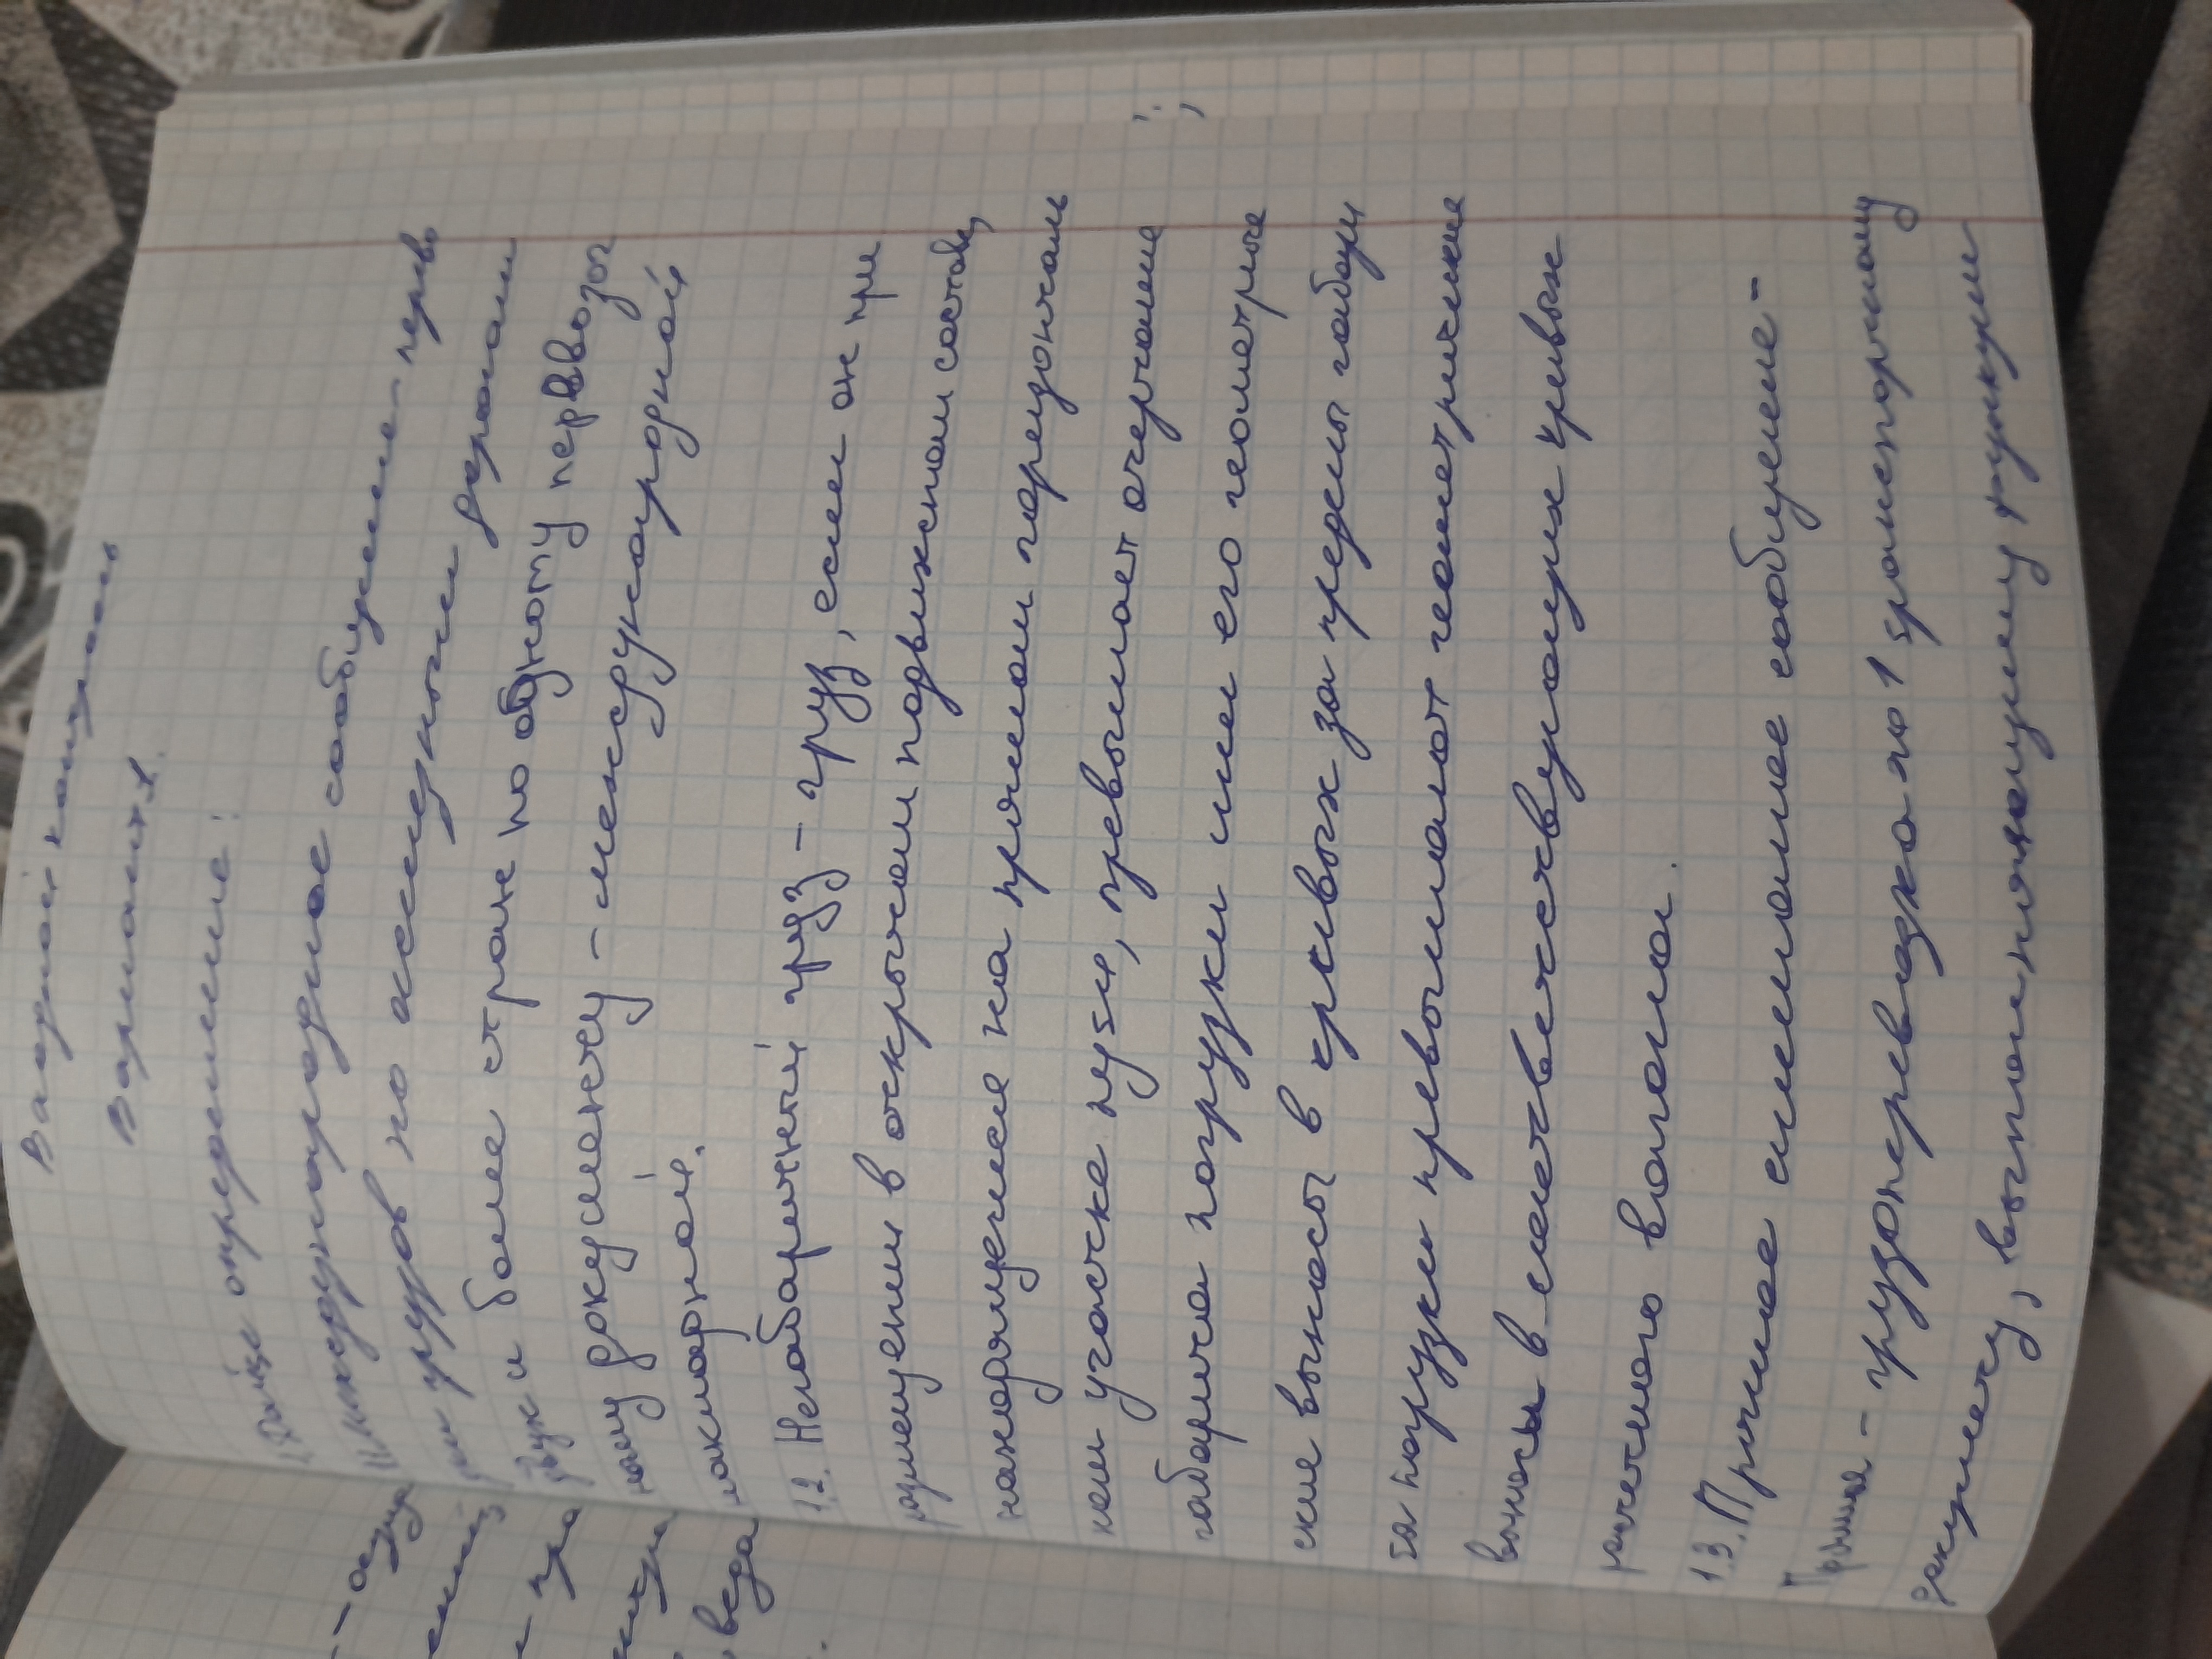 Вариант
Дайте определение:
1.1. Международное сообщение - перево
зки грузов по железным дорогам
двух и более стран по одному перевозоч
ному документу - международной
накладной.
1.2. Негабаритный груз - груз, если он при
размещении в открытом подвижном составе,
находящемся на прямом горизонталь
ном участке пути, превышает очертание
габарита погрузки или его геометриче
ские выносы в кривых за пределы габари
та погрузки превышают геометрические
выносы в соответствующих кривых
расчетного вагона.
1.3. Прямое смешанное сообщение -
- грузоперевозка по 1 транспортному
документу, выполняющему функции